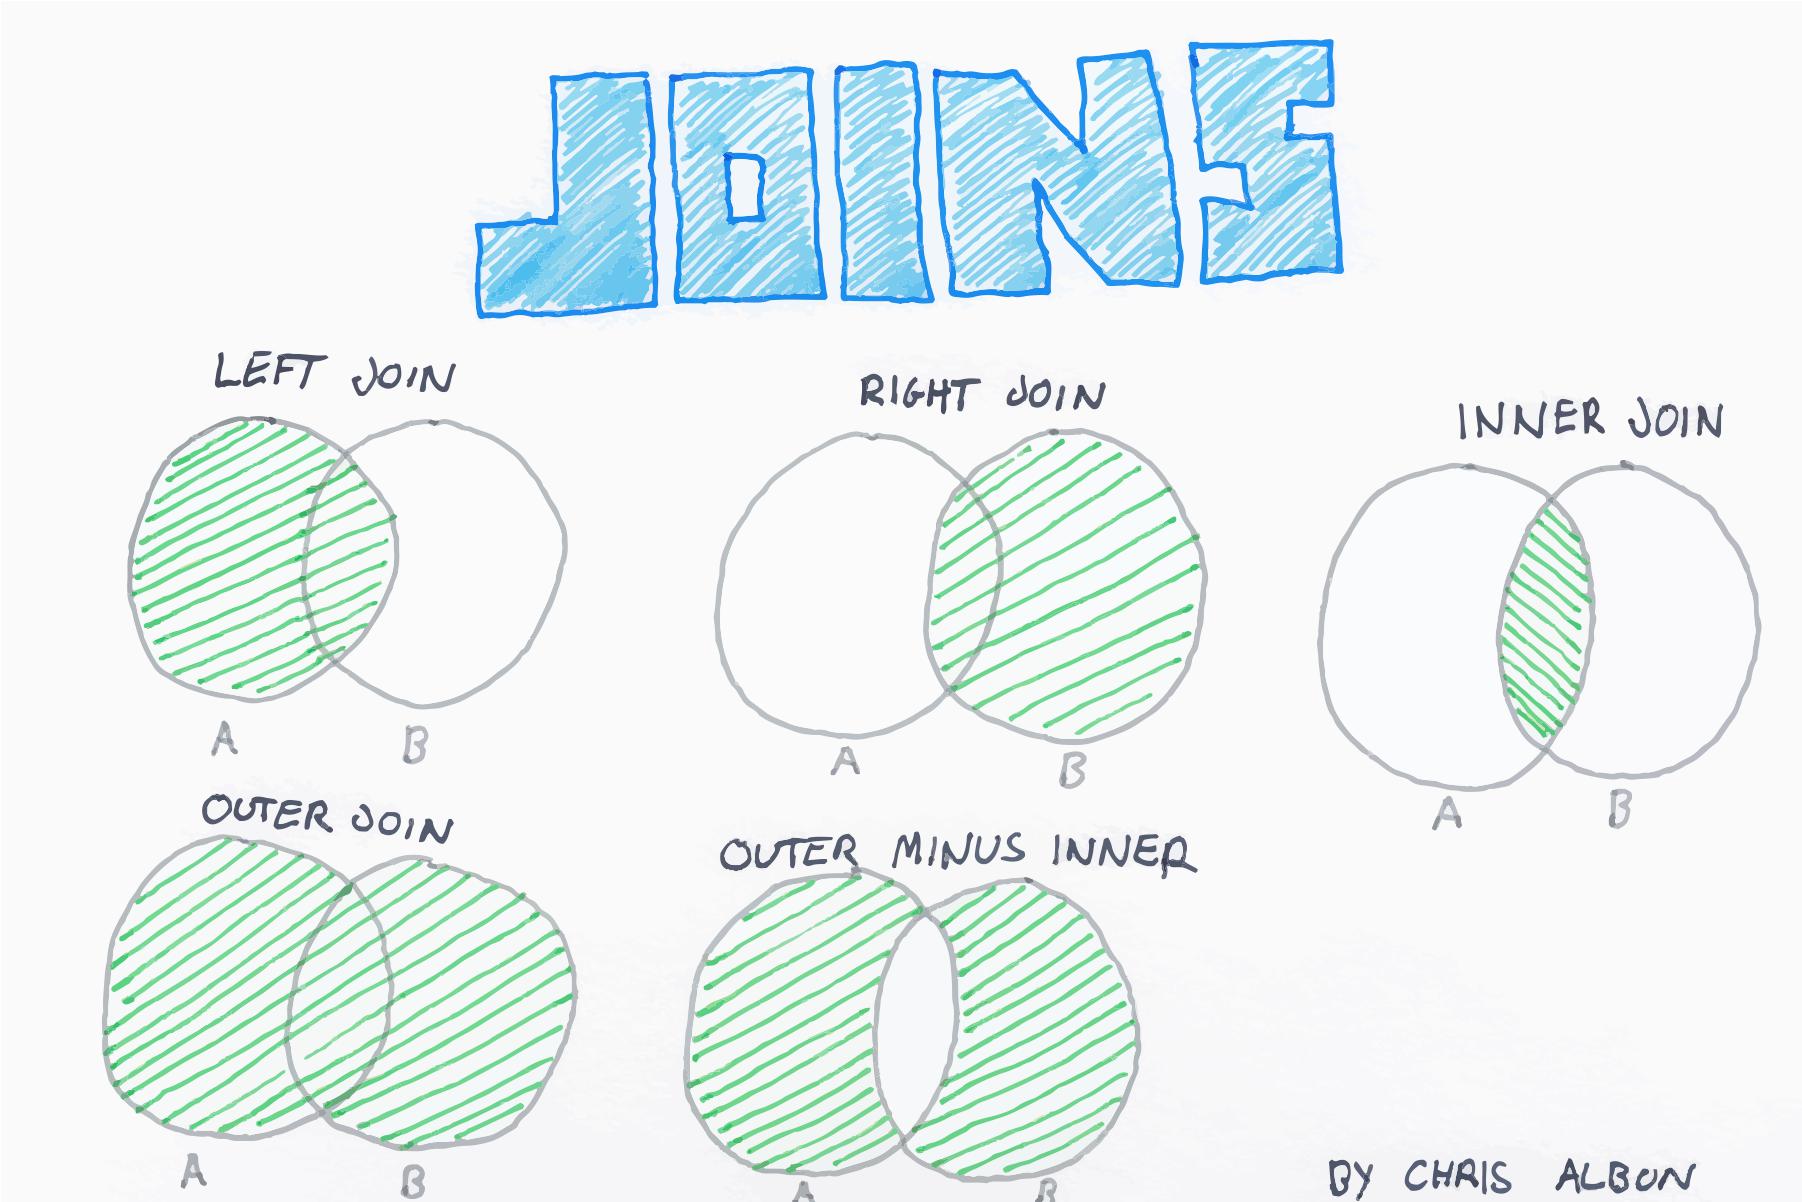 JOINS
LEFT JOIN
RIGHT JOIN
INNER JOIN
A
B
A
B
A
B
OUTER JOIN
OUTER MINUS INNER
A
B
A
B
BY CHRIS ALBON